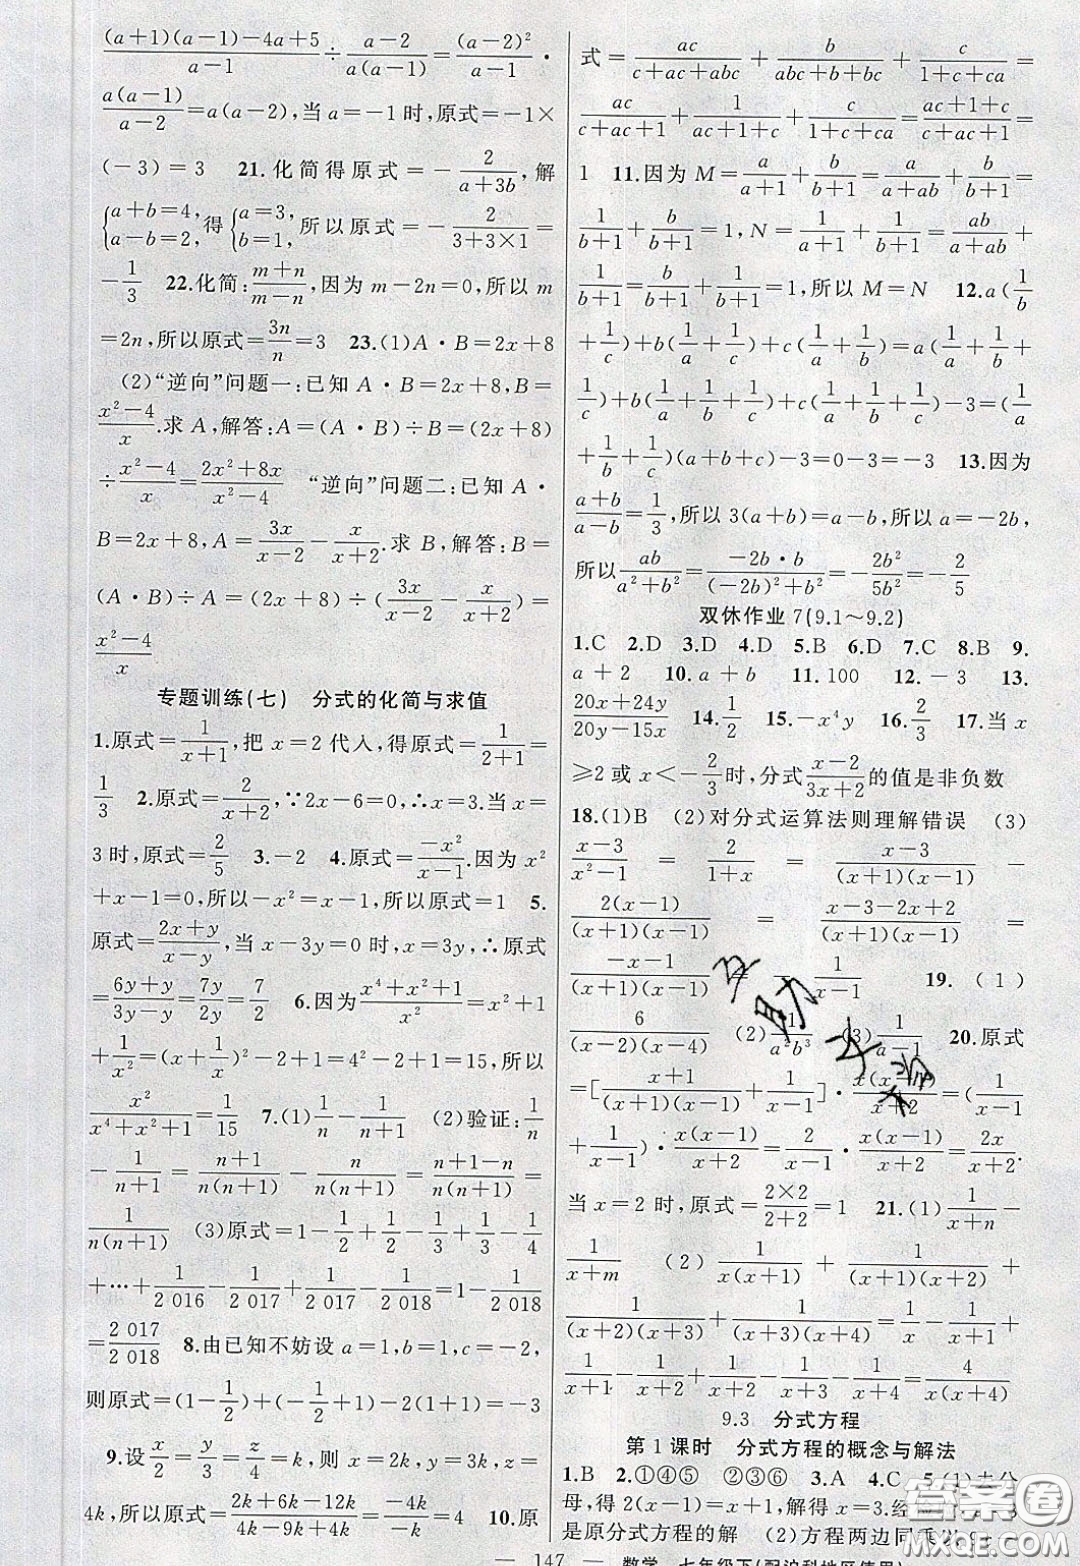 \frac{(a+1)(a-1)-4a+5}{a-1}÷\frac{a-2}{a(a-1)}=\frac{(a-2)^2}{a-1}·
\frac{a(a-1)}{a-2}=a(a-2),当a=-1时,原式=-1×
(-3)=3 21.化简得原式=-\frac{2}{a+3b},解
{a+b=4, a-b=2,得{a=3, b=1,所以原式=-\frac{2}{3+3×1}=
-\frac{1}{3} 22.化简:\frac{m+n}{m-n},因为m-2n=0,所以m
=2n,所以原式=\frac{3n}{n}=3 23.(1)A·B=2x+8
(2)“逆向”问题一:已知A·B=2x+8,B=
\frac{x^2-4}{x}.求A,解答:A=(A·B)÷B=(2x+8)
÷\frac{x^2-4}{x}=\frac{2x^2+8x}{x^2-4} “逆向”问题二:已知A·
B=2x+8,A=\frac{3x}{x-2}-\frac{x}{x+2}.求B,解答:B=
(A·B)÷A=(2x+8)÷(\frac{3x}{x-2}-\frac{x}{x+2})=
\frac{x^2-4}{x}
专题训练(七) 分式的化简与求值
1.原式=\frac{1}{x+1},把x=2代入,得原式=\frac{1}{2+1}=
\frac{1}{3} 2.原式=\frac{2}{x+2},∵2x-6=0,∴x=3.当x=
3时,原式=\frac{2}{5} 3.-2 4.原式=\frac{-x^2}{x-1}.因为x^2
+x-1=0,所以-x^2=x-1,所以原式=1 5.
原式=\frac{2x+y}{x-y},当x-3y=0时,x=3y,∴原式
=\frac{6y+y}{3y-y}=\frac{7y}{2y}=\frac{7}{2} 6.因为\frac{x^4+x^2+1}{x^2}=x^2+1
+\frac{1}{x^2}=(x+\frac{1}{x})^2-2+1=4^2-2+1=15,所以
\frac{x^2}{x^4+x^2+1}=\frac{1}{15} 7.(1)\frac{1}{n}-\frac{1}{n+1} (2)验证:\frac{1}{n}
-\frac{1}{n+1}=\frac{n+1}{n(n+1)}-\frac{n}{n(n+1)}=\frac{n+1-n}{n(n+1)}=
\frac{1}{n(n+1)} (3)原式=1-\frac{1}{2}+\frac{1}{2}-\frac{1}{3}+\frac{1}{3}-\frac{1}{4}
+…+\frac{1}{2 016}-\frac{1}{2 017}+\frac{1}{2 017}-\frac{1}{2 018}=1-\frac{1}{2 018}
=\frac{2 017}{2 018} 8.由已知不妨设a=1,b=1,c=-2,
则原式=(1-\frac{1}{2})+(-\frac{1}{2}+1)-2(1+1)=-3
9.设\frac{x}{2}=\frac{y}{3}=\frac{z}{4}=k,则x=2k,y=3k,z=
4k,所以原式=\frac{2k+6k-12k}{4k-9k+4k}=\frac{-4k}{-k}=4 10.原
式=\frac{ac}{c+ac+abc}+\frac{b}{abc+b+bc}+\frac{c}{1+c+ca}=
\frac{ac}{c+ac+1}+\frac{1}{ac+1+c}+\frac{c}{1+c+ca}=\frac{ac+1+c}{c+ac+1}=
1 11.因为M=\frac{a}{a+1}+\frac{b}{b+1}=\frac{a}{a+ab}+\frac{b}{b+1}=
\frac{1}{b+1}+\frac{b}{b+1}=1,N=\frac{1}{a+1}+\frac{1}{b+1}=\frac{ab}{a+ab}+
\frac{1}{b+1}=\frac{b}{b+1}+\frac{1}{b+1}=1,所以M=N 12.a(\frac{1}{b}
+\frac{1}{c})+b(\frac{1}{a}+\frac{1}{c})+c(\frac{1}{a}+\frac{1}{b})=a(\frac{1}{a}+\frac{1}{b}+
\frac{1}{c})+b(\frac{1}{a}+\frac{1}{b}+\frac{1}{c})+c(\frac{1}{a}+\frac{1}{b}+\frac{1}{c})-3=(\frac{1}{a}
+\frac{1}{b}+\frac{1}{c})(a+b+c)-3=0-3=-3 13.因为
\frac{a+b}{a-b}=\frac{1}{3},所以3(a+b)=a-b,所以a=-2b,
所以\frac{ab}{a^2+b^2}=\frac{-2b·b}{(-2b)^2+b^2}=-\frac{2b^2}{5b^2}=-\frac{2}{5}
双休作业7(9.1~9.2)
1.C 2.D 3.D 4.D 5.B 6.D 7.C 8.B 9.
a+2 10.a+b 11.100 12.-3 13.
\frac{20x+24y}{20y-15x} 14.\frac{1}{2} 15.-x^4y 16.\frac{2}{3} 17.当x
≥2或x<-\frac{2}{3}时,分式\frac{x-2}{3x+2}的值是非负数
18.(1)B (2)对分式运算法则理解错误 (3)
\frac{x-3}{x^2-1}-\frac{2}{1+x}=\frac{x-3}{(x+1)(x-1)}-
\frac{2(x-1)}{(x+1)(x-1)}=\frac{x-3-2x+2}{(x+1)(x-1)}=
\frac{-x-1}{(x+1)(x-1)}=-\frac{1}{x-1} 19.(1)
\frac{6}{(x-2)(x-4)} (2)\frac{1}{a^2b^3} (3)\frac{1}{a-1} 20.原式
=[\frac{x+1}{(x+1)(x-1)}+\frac{1}{x-1}]·\frac{x(x-1)}{x+2}=(\frac{1}{x-1}
+\frac{1}{x-1})·\frac{x(x-1)}{x+2}=\frac{2}{x-1}·\frac{x(x-1)}{x+2}=\frac{2x}{x+2}.
当x=2时,原式=\frac{2×2}{2+2}=1 21.(1)\frac{1}{x+n}-
\frac{1}{x+m} (2)\frac{1}{x(x+1)}+\frac{1}{(x+1)(x+2)}+
\frac{1}{(x+2)(x+3)}+\frac{1}{(x+3)(x+4)}=\frac{1}{x}-\frac{1}{x+1}+
\frac{1}{x+1}-\frac{1}{x+2}+…-\frac{1}{x+4}=\frac{1}{x}-\frac{1}{x+4}=\frac{4}{x(x+4)}
9.3 分式方程
第1课时 分式方程的概念与解法
1.B 2.①④⑤ ②③⑥ 3.A 4.C 5.(1)去分
母,得2(x-1)=x+1,解得x=3.经
是原分式方程的解 (2)方程两边同乘以
147 数学 七年级下(配沪科地区使用)
答案圈